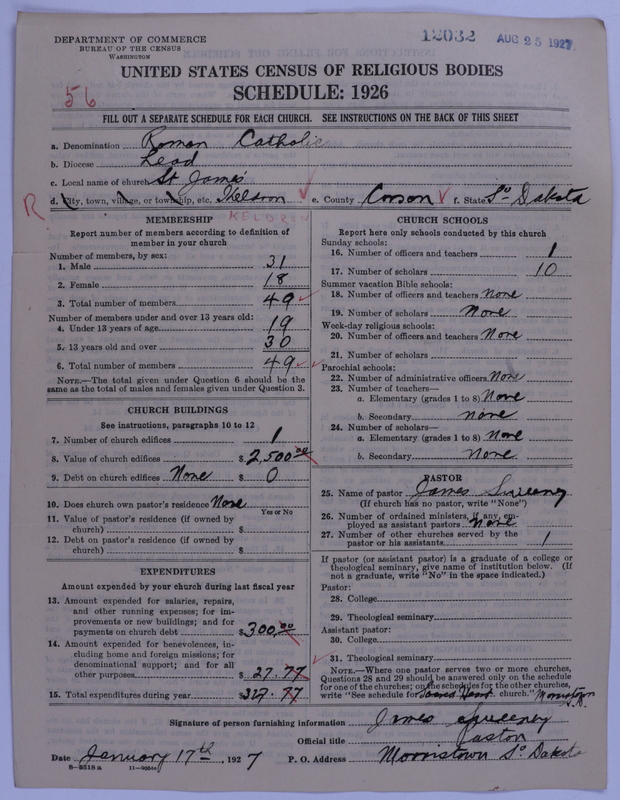 DEPARTMENT OF COMMERCE
BUREAU OF THE CENSUS
WASHINGTON
12032 AUG 25 1927
UNITED STATES CENSUS OF RELIGIOUS BODIES
SCHEDULE: 1926
56
FILL OUT A SEPARATE SCHEDULE FOR EACH CHURCH. SEE INSTRUCTIONS ON THE BACK OF THIS SHEET
a. Denomination Roman Catholic
b. Diocese Lead
c. Local name of church St James
R d. City, town, village, or township, etc. Keldron e. County Corson f. State So Dakota
KELDRON
MEMBERSHIP
Report number of members according to definition of
member in your church
Number of members, by sex:
1. Male 31
2. Female 18
3. Total number of members 49
Number of members under and over 13 years old:
4. Under 13 years of age 19
5. 13 years old and over 30
6. Total number of members 49
NOTE.—The total given under Question 6 should be the
same as the total of males and females given under Question 3.
CHURCH BUILDINGS
See instructions, paragraphs 10 to 12
7. Number of church edifices 1
8. Value of church edifices $ 2,500.00
9. Debt on church edifices None $ 0
10. Does church own pastor's residence None
Yes or No
11. Value of pastor's residence (if owned by
church) $
12. Debt on pastor's residence (if owned by
church) $
EXPENDITURES
Amount expended by your church during last fiscal year
13. Amount expended for salaries, repairs,
and other running expenses; for im-
provements or new buildings; and for
payments on church debt $ 300.00
14. Amount expended for benevolences, in-
cluding home and foreign missions; for
denominational support; and for all
other purposes $ 27.77
15. Total expenditures during year $ 327.77
CHURCH SCHOOLS
Report here only schools conducted by this church
Sunday schools:
16. Number of officers and teachers 1
17. Number of scholars 10
Summer vacation Bible schools:
18. Number of officers and teachers None
19. Number of scholars None
Week-day religious schools:
20. Number of officers and teachers None
21. Number of scholars
Parochial schools:
22. Number of administrative officers None
23. Number of teachers—
a. Elementary (grades 1 to 8) None
b. Secondary None
24. Number of scholars—
a. Elementary (grades 1 to 8) None
b. Secondary None
PASTOR
25. Name of pastor James Sweeney
(If church has no pastor, write "None")
26. Number of ordained ministers, if any, em-
ployed as assistant pastors None
27. Number of other churches served by the
pastor or his assistants 1
If pastor (or assistant pastor) is a graduate of a college or
theological seminary, give name of institution below. (If
not a graduate, write "No" in the space indicated.)
Pastor:
28. College
29. Theological seminary
Assistant pastor:
30. College
31. Theological seminary
NOTE.—Where one pastor serves two or more churches,
Questions 28 and 29 should be answered only on the schedule
for one of the churches; on the schedules for the other churches,
write "See schedule for Sacred Heart church." Morristown S.D.
Signature of person furnishing information James Sweeney
Official title Pastor
Date January 17th, 1927 P. O. Address Morristown So Dakota